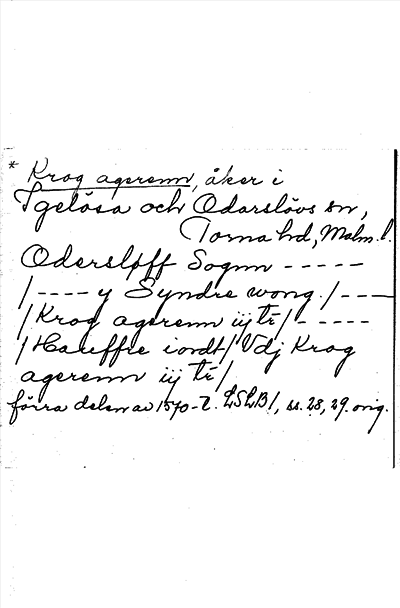 * Krog agerenn, åker i
Igelösa och Odarslövs sn,
Torna hd, Malm. l.
Odersløff Sognn - - - - -
/ - - - - y Syndre wong / - - -
/ Krog agerenn iij tr / - - - - -
/ Haueffre iordt / Vdj Krog
agerenn iij tr /
förra delen av 1570-t. LSLB 1, ss. 28, 29. orig.